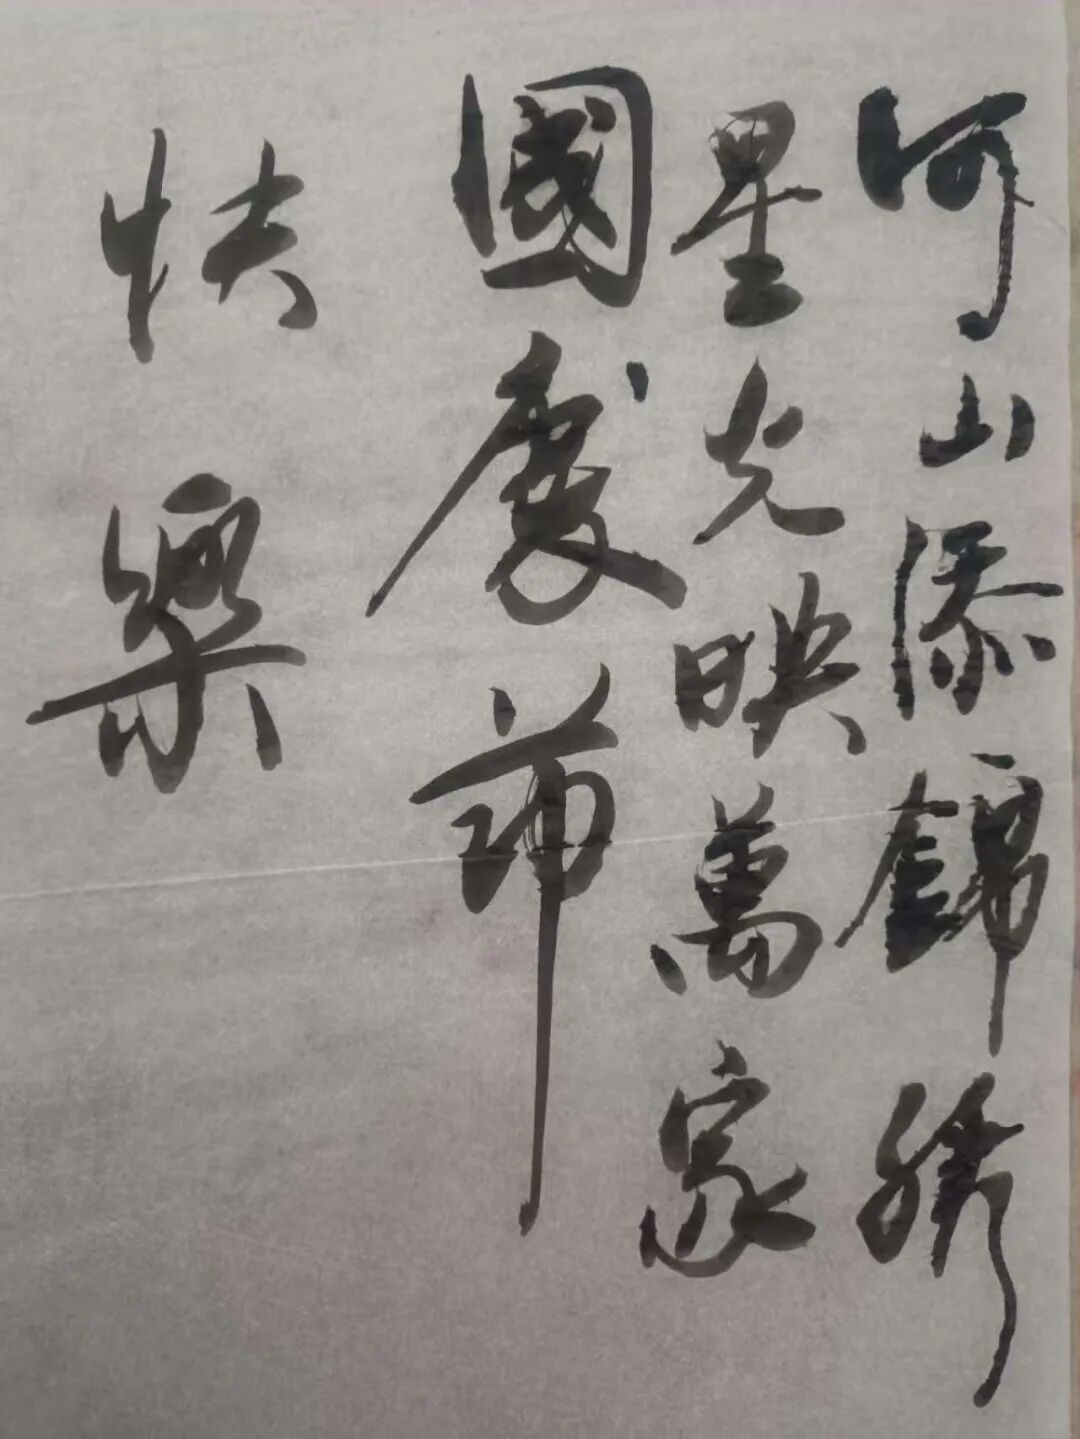 河山添錦绣
星光映萬家
國慶节
快樂